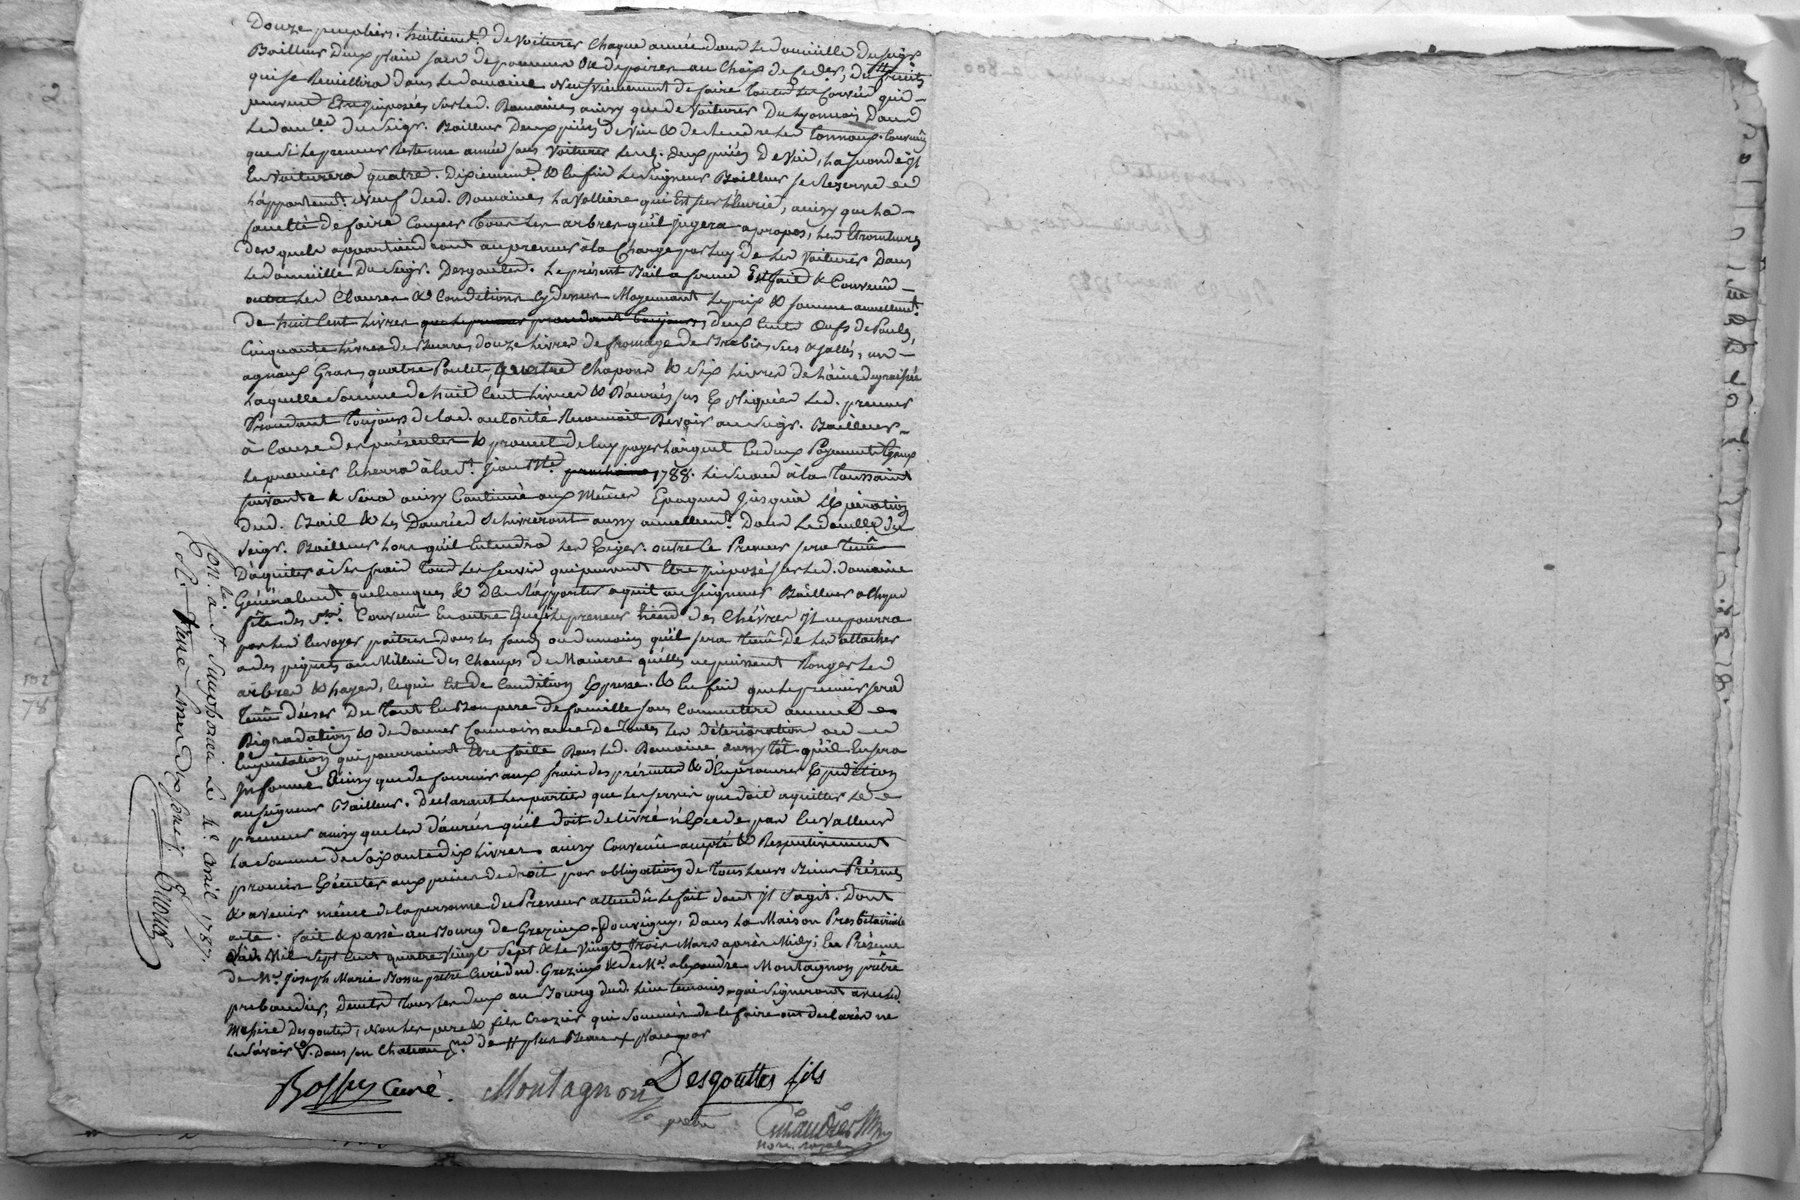 Douze peupliers. huitiement. de voiturer chaque année dans le domicille du seigr.
Bailleur deux plain sacs de pommes ou de poires au choix de ce der. du fruits
qui se ceuillira dans le domaine Neufviemement de faire toutes les corvées qui
peuvent etre imposées sur led. Domaine, ainsy que de voiturer du Lyonnois dans
le dom.lle du seigr. Bailleur deux pièces de vin & de rendre les tonnaux. Convenu
que si le preneur reste une année sans voiturer lesd. deux pièces de vin, la seconde il
en voiturera quatre. Dixiement. & enfin le seigneur Bailleur se reserve
l'appartemt. neuf dud. Domaine, la vollière qui est sur l'écurie, ainsy que la
faculté de faire couper tous les arbres qu'il jugera apropos, les
desquels appartiendront au preneur à la charge par luy de les voiturer dans
le domicille du seigr. Desgouttes. Le présent Bail a ferme est fait & convenu
outre les clauses & conditions cy dessus moyennant le prix & somme annuellemt.
de huit cent livres que le preneur prondant toujours, deux cents oeufs de poules,
cinquante livres de beurre, douze livres de fromage de brebis, secs & sallés, un
agneaux gras, quatre poulets, quatre chapons & six livres de laine degraissée
laquelle somme de huit cent livres & danrées sus expliquées led. preneur
prondant toujours de lad. autorité reconnoit devoir au seigr. Bailleur
à cause des présentes & promet de luy payer l'argent en deux payements egaux
le premier echerra à la st. Jean Bte. prochaine 1788. le second à la Toussaint
suivante & sera ainsy continué aux mêmes epoques jusqu'à l'expiration
dud. Bail & les danrées se livreront aussy annuellemt. dans le domicille du
seigr. Bailleur lors qu'il entendra les exiger. outre ce preneur sera tenu
d'aquiter à ses frais tous les servis qui peuvent etre imposés sur led. domaine
généralemt. quelconques & d'en rapporter aquit au seigneur Bailleur a chaque
fête des Convenu en outre que si le preneur tiend des chèvres il ne pourra
pas les envoyer paitre dans les fonds ou du moins qu'il sera tenu de les attacher
a des piquets au millieu des champs de maniere qu'elles ne puissent ronger les
arbres & hayes, ce qui est de condition expresse. & enfin que le preneur sera
tenu d'user du tout en bon pere de famille sans commettre aucunes
degradations & de donner connoissance de toutes les détériorations ou
qui pourroient etre faite dans led. Domaine aussy tôt qu'il en sera
informé ainsy que de fournir aux frais des présentes & d'en procurer expedition
au seigneur Bailleur. Declarant les parties que les servis que doit aquitter le
preneur ainsy que les danrées qu'il doit delivré n'excede pas en valleur
la somme de soixante dix livres. ainsy convenu accepté & respectivement
promis executer aux peines de droit par obligation de tous leurs biens présents
& avenir même de la personne du Preneur attendu le fait dont il s'agit. Dont
acte. fait & passé au Bourg de Grezieux Souvigny, dans la Maison Presbitairialle
Mil sept cent quatre vingt sept & le vingt trois Mars après midy; en présence
de Mre. Joseph Marie Bossu prêtre curé dud. Grezieux & de Mre. alexandre Montagnon prêtre
prebandier, demts. tous les deux au Bourg dud. lieu temoins qui signeront avec led.
Messire Desgouttes, non les pere & fils Crozier qui sommés de le faire ont declarés ne
le sçavoir. dans son chateau de plus
Bossu curé. Montagnon Desgouttes fils
prêtre
nore. royal
Con.lé a St. Simphorien le 4e. avril 1787.